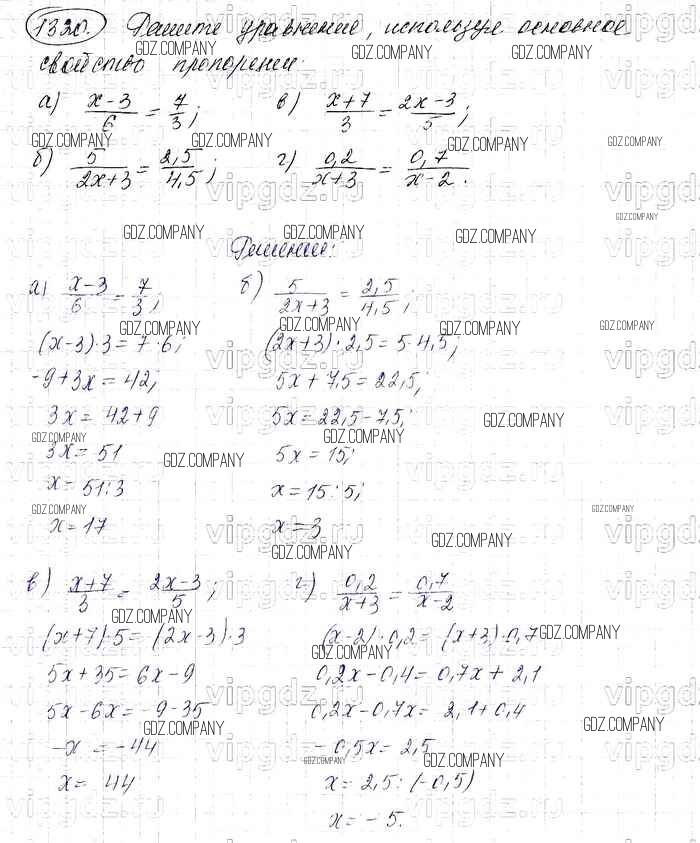 1320. Решите уравнение, используя основное
свойство пропорции:
а) x-3/6 = 7/3; в) x+7/3 = 2x-3/5;
б) 5/2x+3 = 2,5/4,5; г) 0,2/x+3 = 0,7/x-2.
Решение:
а) x-3/6 = 7/3; б) 5/2x+3 = 2,5/4,5;
(x-3)·3=7·6; (2x+3)·2,5=5·4,5;
-9+3x=42; 5x+7,5=22,5;
3x=42+9 5x=22,5-7,5;
3x=51 5x=15;
x=51:3 x=15:5;
x=17 x=3
в) x+7/3 = 2x-3/5; г) 0,2/x+3 = 0,7/x-2
(x+7)·5=(2x-3)·3 (x-2)·0,2=(x+3)·0,7
5x+35=6x-9 0,2x-0,4=0,7x+2,1
5x-6x=-9-35 0,2x-0,7x=2,1+0,4
-x=-44 -0,5x=2,5
x=44 x=2,5:(-0,5)
x=-5.
GDZ.COMPANY
vipgdz.ru